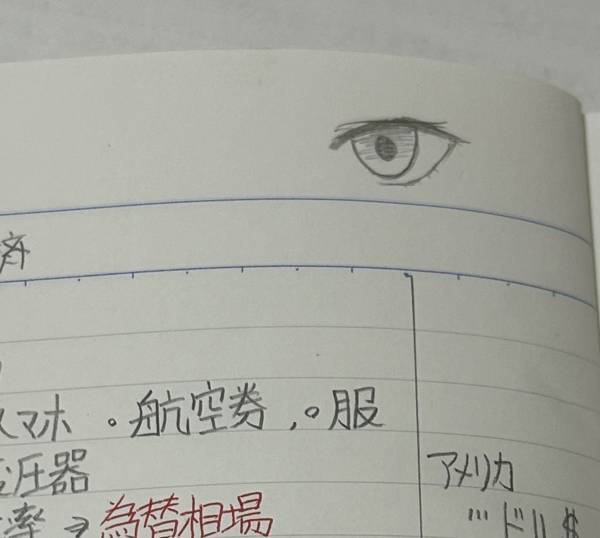 済
スマホ 。航空券 , 。服
変圧器
アメリカ
率 → 為替相場
… ドル $